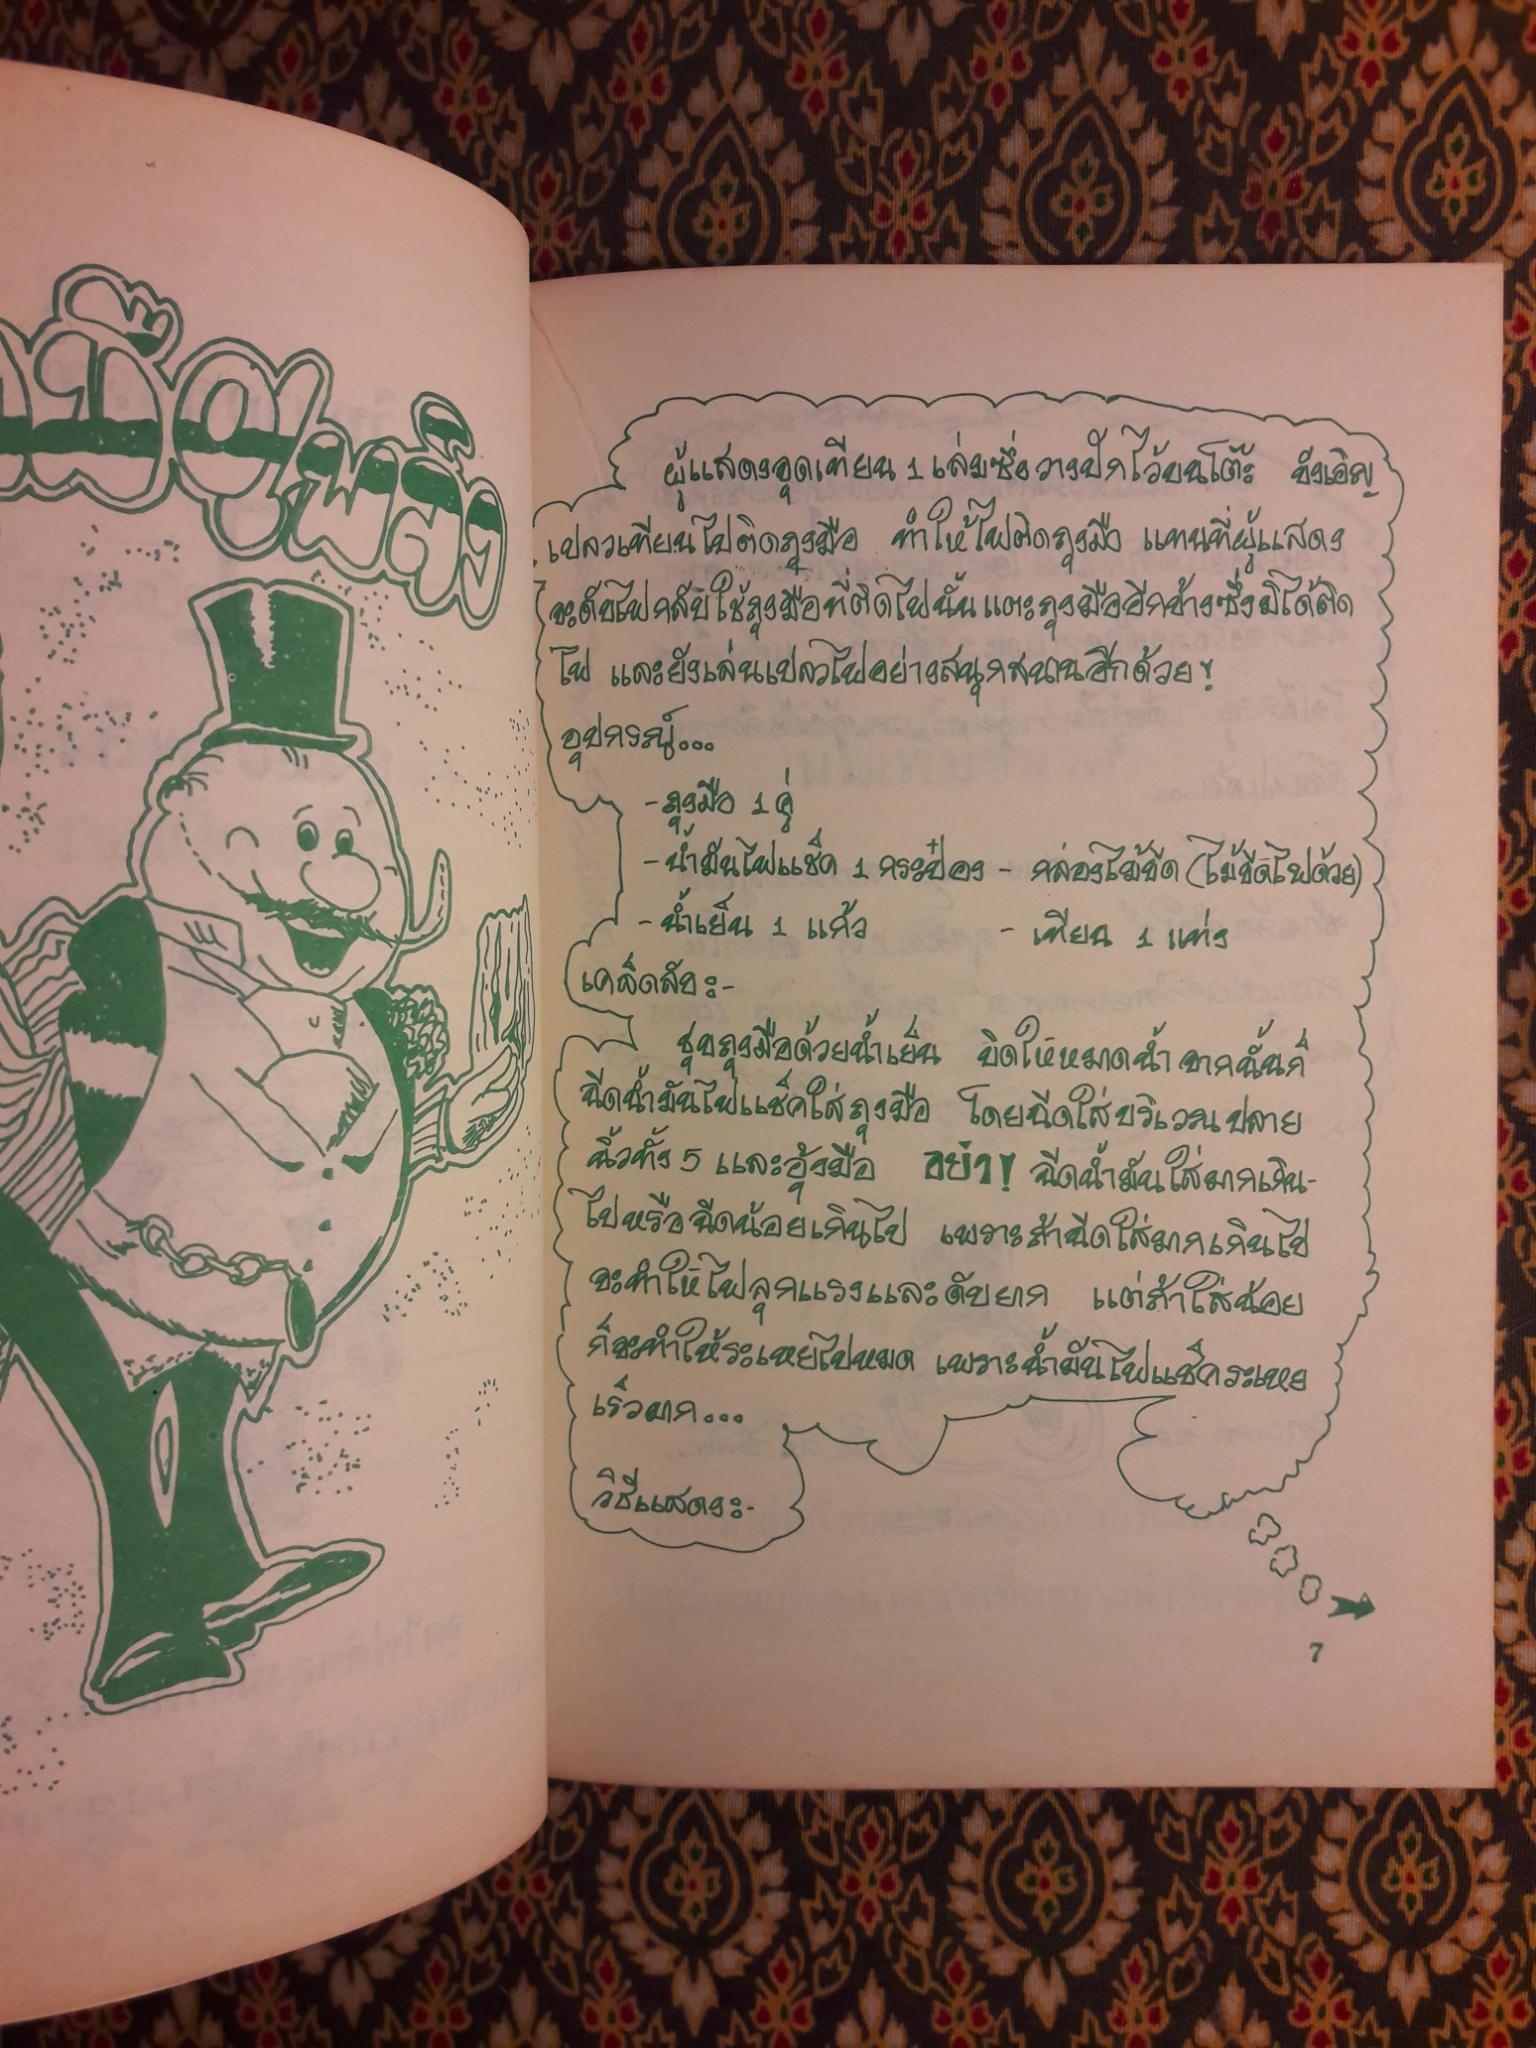 มือเพลิง
ผู้แสดงจุดเทียน 1 เล่มซึ่งวางปักไว้บนโต๊ะ บังเอิญ
เปลวเทียนไปติดถุงมือ ทำให้ไฟติดถุงมือ แทนที่ผู้แสดง
จะดับไฟกลับใช้ถุงมือที่ติดไฟนั้นแตะถุงมืออีกข้างซึ่งมิได้ติด
ไฟ และยังเล่นเปลวไฟอย่างสนุกสนานอีกด้วย!
อุปกรณ์...
-ถุงมือ 1 คู่
-น้ำมันไฟแช็ค 1 กระป๋อง - กล่องไม้ขีด (ไม้ขีดไฟด้วย)
-น้ำเย็น 1 แก้ว - เทียน 1 แท่ง
เคล็ดลับ:-
ชุบถุงมือด้วยน้ำเย็น บิดให้หมาดน้ำ จากนั้นก็
ฉีดน้ำมันไฟแช็คใส่ถุงมือ โดยฉีดใส่บริเวณปลาย
นิ้วทั้ง 5 และอุ้งมือ อย่า! ฉีดน้ำมันใส่มากเกิน-
ไปหรือฉีดน้อยเกินไป เพราะถ้าฉีดใส่มากเกินไป
จะทำให้ไฟลุกแรงและดับยาก แต่ถ้าใส่น้อย
ก็จะทำให้ระเหยไปหมด เพราะน้ำมันไฟแช็คระเหย
เร็วมาก...
วิธีแสดง:-
7